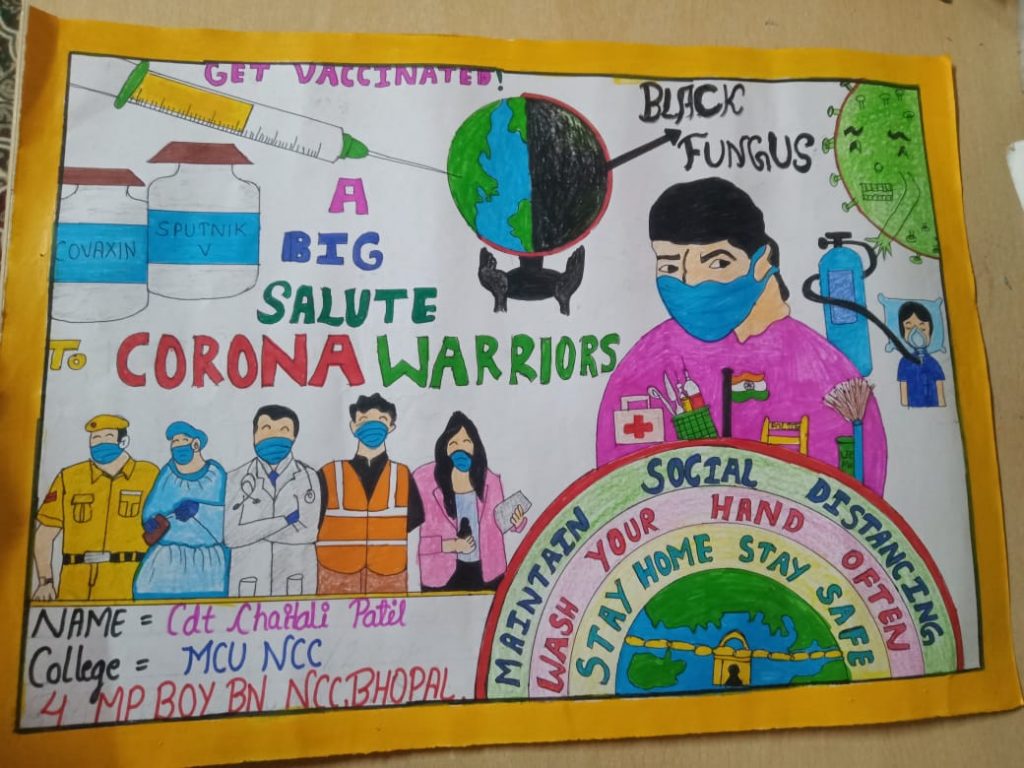 GET VACCINATED!
BLACK
FUNGUS
COVAXIN
SPUTNIK
V
A
BIG
SALUTE
To CORONA WARRIORS
MAINTAIN SOCIAL DISTANCING
WASH YOUR HAND OFTEN
STAY HOME STAY SAFE
NAME = Cdt Chaitali Patil
College = MCU NCC
4 MP BOY BN NCC, BHOPAL.